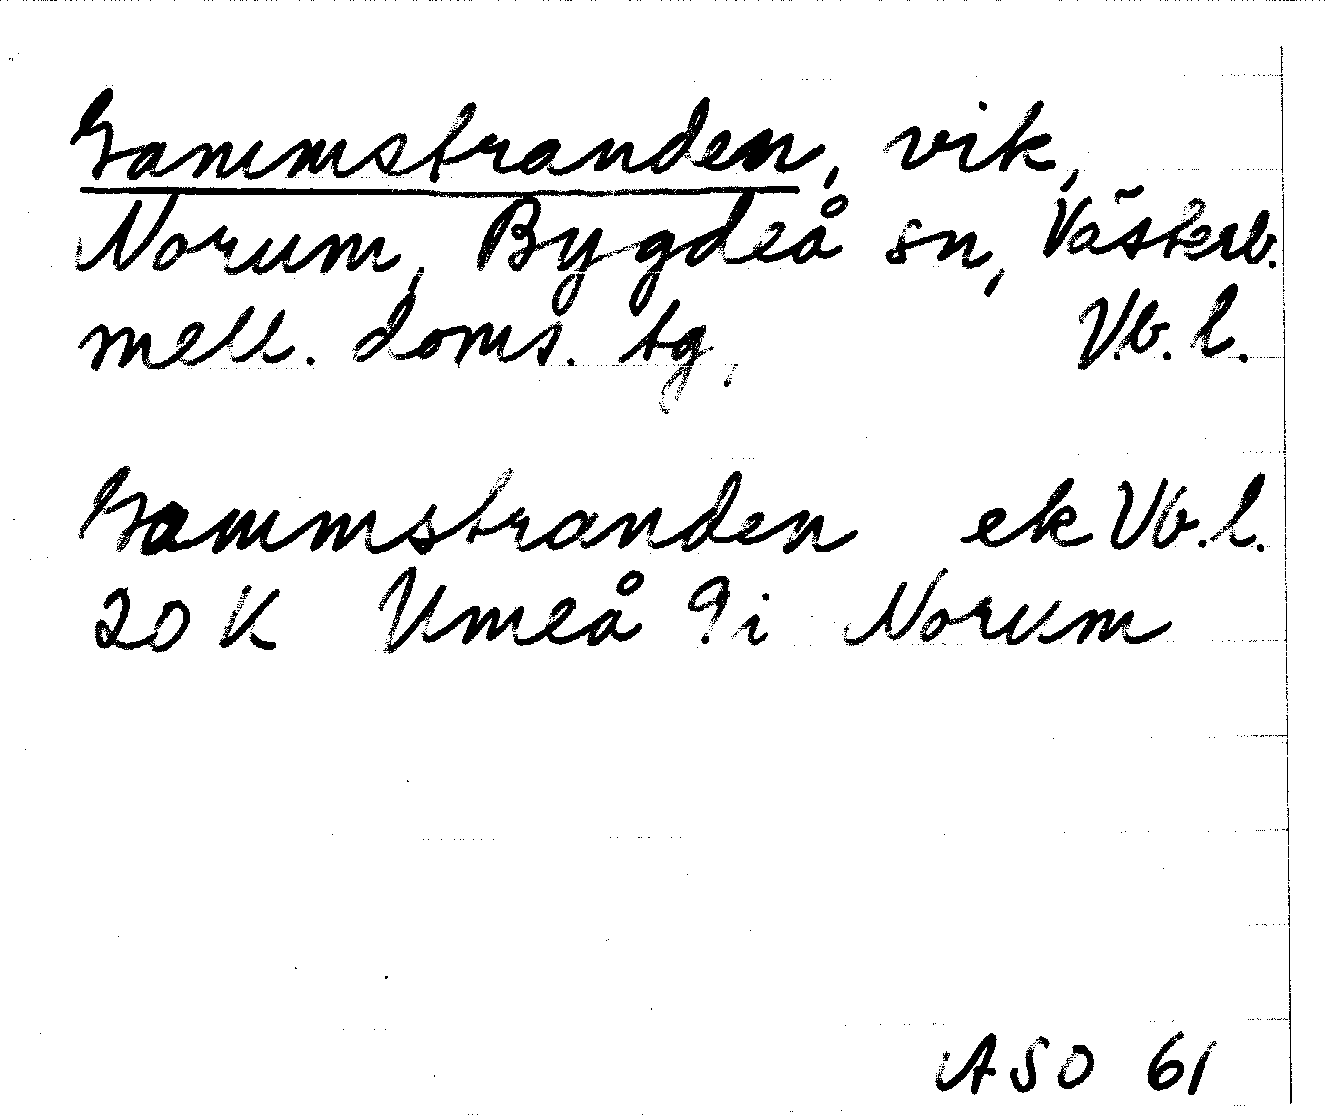 Gammstranden, vik,
Norum, Bygdeå sn, Västerb.
mell. doms. tg, Vb. l.
Gammstranden ek Vb. l.
20 K Umeå 9 i Norum
ASO 61